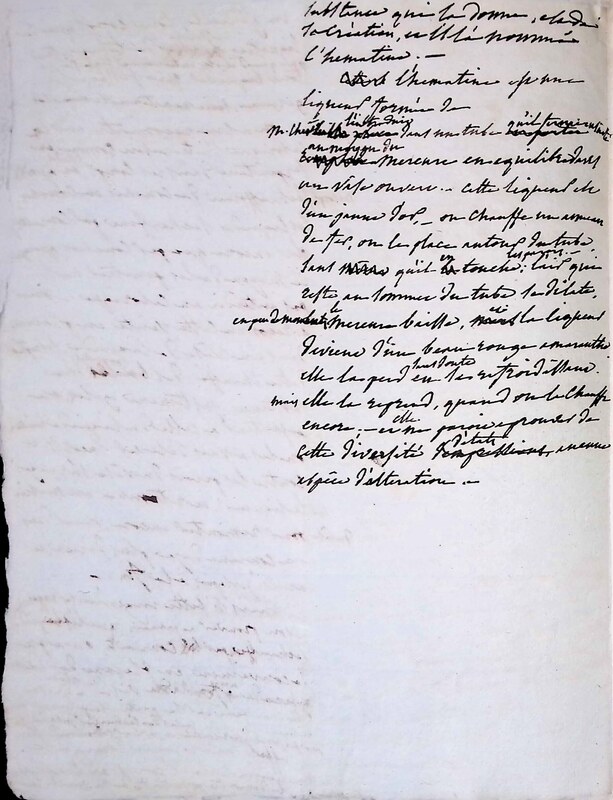 substance qui la donne, a dû
sa création, il l'a nommée
l'hematine. —
l'hematine est une
liqueur formée de
m. Che l'introduit dans un tube qu'il
au moyen du
mercure en equilibre dans
un vase ouvert. — cette liqueur est
d'un jaune d'or, — on chauffe un anneau
de fer, on le place autour du tube
sans qu'il en touche; l'air qui
reste au sommet du tube se dilate,
en peu de le mercure baisse, et la liqueur
devient d'un beau rouge amaranthe
elle la perd sans doute en se refroidissant.
mais elle la reprend, quand on la chauffe
encore. — elle ne paroit eprouver de
cette diversité d'états, aucune
espèce d'alteration. —